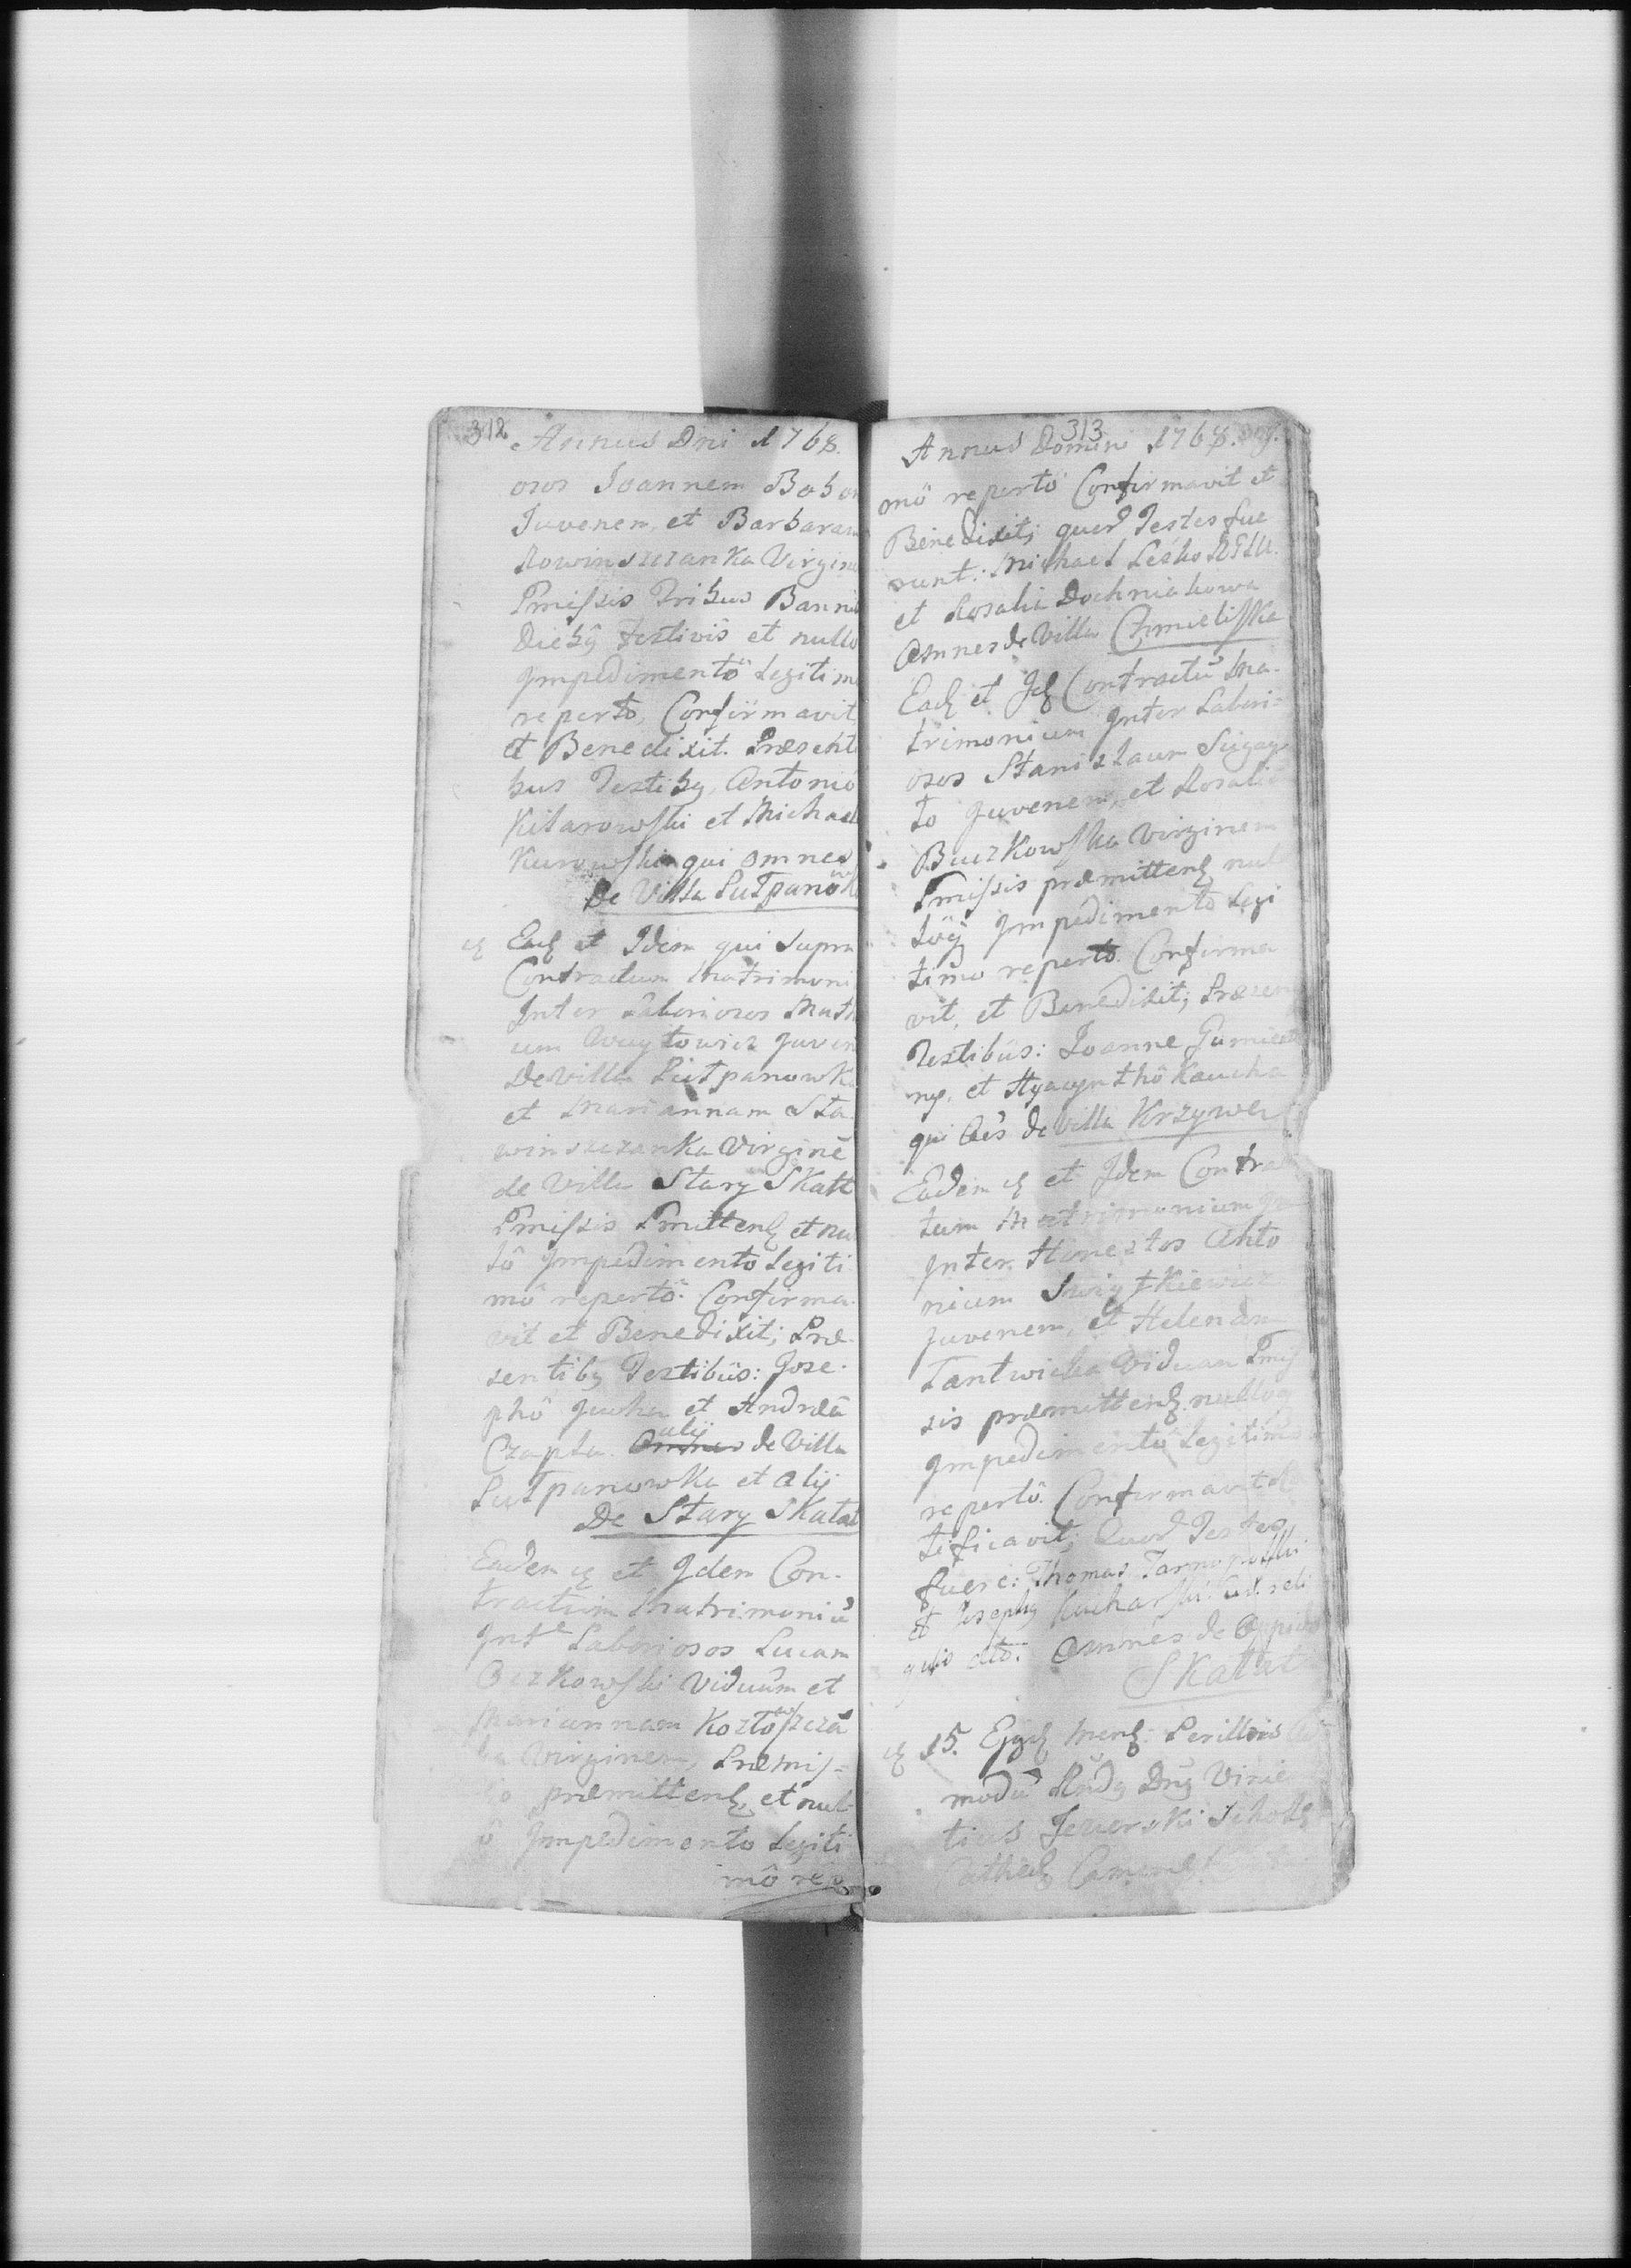 312
Annus Dni 1768.
osos Joannem Bobo
Juvenem, et Barbaram
Rowinszczanka Virgine
Pmissis Tribus Bannis
Dieby festivis et nullo
Jmpedimentô Legitimo
repertô, Confirmavit,
et Benedixit. Præsenti
bus Testiby, Antonio
Kitarowski et Michaele
Kurowski qui omnes
De Villa Lutpanówka
Eadȩ et Idem qui supra
Contractum Matrimoni
Inter Laboriosos Math
eum Woytowicz Juven
De Villa Lutpanowka
et Mariannam Sta
winszczanka Virginē
de Villa Stary Skałat
Pmissis Pmittenȩ et nu
lô Jmpedimento Legiti
mô repertô. Confirma
vit et Benedixit; Præ
sentiby Testibus: Jose
phô Jucha et Andreâ
Czapla. alij de Villa
Lutpanowka et alij
De Stary Skałat
Eademȩ et Jdem Con
tractum Matrimoniū
Inte Laboriosos Lucam
Oczkowski Viduum et
Mariannam Kozłowszczā
ka Virginem, Præmis=
so præmittenȩ, et nul
ô Jmpedimento Legiti
mô rep
313
Annus Domini 1768.
mô repertô Confirmavit et
Benedixit; quor Testes fue
runt: Michael Leśko
et Rosalia Dochniakowa
Omnes de Villa Chmieliska
Eadȩ et Jdȩ Contractū Ma
trimonium Inter Labori=
osos Stanislaum Sizgay
to Juvenem, et Rosaliā
Buczkowska Virginem
Pmissis præmittenȩ nul
loq Jmpedimento Legi
timo reperto Confirma
vit, et Benedixit; Præsen
Testibus: Joanne Gumien
ny, et Hyacynthô Kaucha
qui Oēs de Villa Krzywe
Eademȩ et Jdem Contrac
tum Matrimonium
Inter Honestos Anto
nium Swiątkiewicz
Juvenem, et Helenam
Tantwicka Viduam Pmis
sis præmittenȩ nulloq
Jmpedimentô Legitimô
repertô. Confirmavit
tificavit; Quor Testes
fuere: Thomas Tarnopolski
et Josephy Kucharski
Omnes de Oppido
Skałat
15. Ejqȩ menȩ: Perillris
modū Rndy Dny Vincen
tius Jezierski